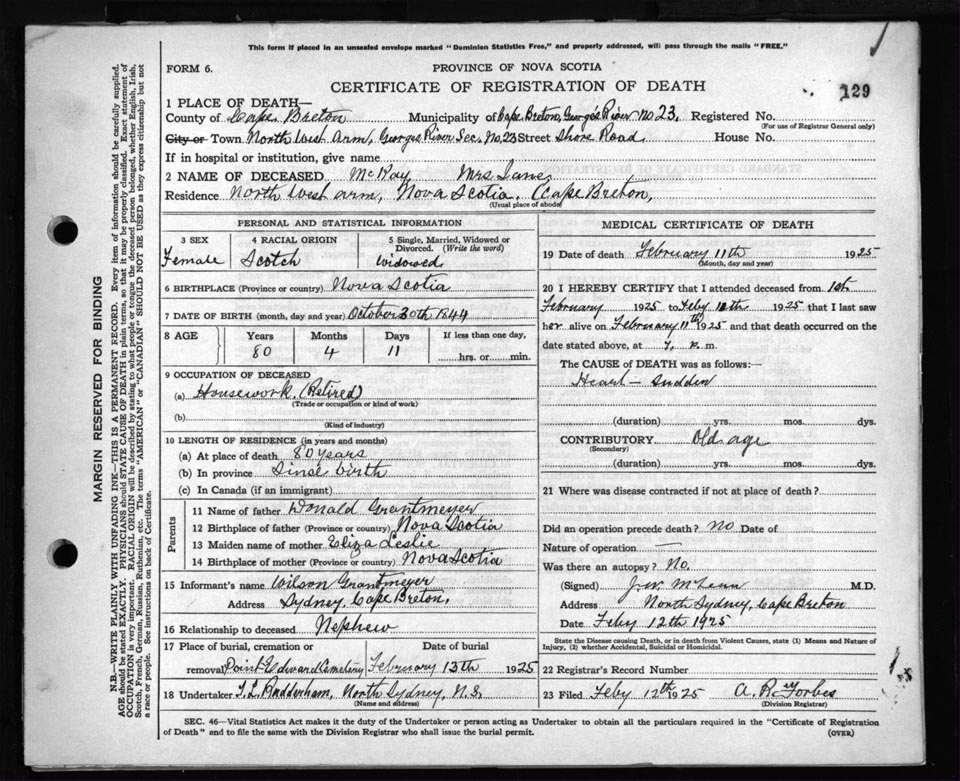 This form if placed in an unsealed envelope marked "Dominion Statistics Free," and properly addressed, will pass through the mails "FREE."
FORM 6.
PROVINCE OF NOVA SCOTIA
CERTIFICATE OF REGISTRATION OF DEATH
129
1 PLACE OF DEATH—
County of Cape Breton Municipality of Cape Breton, Georges River No 23, Registered No.
(For use of Registrar General only)
City or Town North West Arm, Georges River Sec. No. 23 Street Shore Road House No.
If in hospital or institution, give name
2 NAME OF DECEASED McKay Mrs Jane,
Residence North West Arm, Nova Scotia, (Cape Breton,
(Usual place of abode)
PERSONAL AND STATISTICAL INFORMATION
3 SEX
Female
4 RACIAL ORIGIN
Scotch
5 Single, Married, Widowed or Divorced. (Write the word)
Widowed
6 BIRTHPLACE (Province or country) Nova Scotia
7 DATE OF BIRTH (month, day and year) October 30th 1844
8 AGE Years Months Days If less than one day,
80 4 11 hrs. or min.
9 OCCUPATION OF DECEASED
(a) Housework. (Retired)
(Trade or occupation or kind of work)
(b)
(Kind of industry)
10 LENGTH OF RESIDENCE (in years and months)
(a) At place of death 80 years
(b) In province Since birth
(c) In Canada (if an immigrant)
Parents
11 Name of father Donald Grantmeyer
12 Birthplace of father (Province or country) Nova Scotia
13 Maiden name of mother Eliza Leslie
14 Birthplace of mother (Province or country) Nova Scotia
15 Informant's name Wilson Grantmeyer
Address Sydney, Cape Breton,
16 Relationship to deceased Nephew
17 Place of burial, cremation or removal Point Edward Cemetery
Date of burial
February 13th 1925
18 Undertaker T. L. Rudderham, North Sydney, N.S.
(Name and address)
MEDICAL CERTIFICATE OF DEATH
19 Date of death February 11th 1925
(Month, day and year)
20 I HEREBY CERTIFY that I attended deceased from 1st
February 1925 to Feby 1925 that I last saw
her alive on February 11th 1925 and that death occurred on the
date stated above, at 7, P. m.
The CAUSE OF DEATH was as follows:—
Heart — Sudden
(duration) yrs. mos. dys.
CONTRIBUTORY Old age
(Secondary)
(duration) yrs. mos. dys.
21 Where was disease contracted if not at place of death?
Did an operation precede death? No Date of
Nature of operation —
Was there an autopsy? No.
(Signed) J. W. McLean M.D.
Address North Sydney, Cape Breton
Date Feby 12th 1925
State the Disease causing Death, or in death from Violent Causes, state (1) Means and Nature of Injury, (2) whether Accidental, Suicidal or Homicidal.
22 Registrar's Record Number
23 Filed Feby 12th 1925 A. R. Forbes
(Division Registrar)
SEC. 46—Vital Statistics Act makes it the duty of the Undertaker or person acting as Undertaker to obtain all the particulars required in the "Certificate of Registration
of Death" and to file the same with the Division Registrar who shall issue the burial permit.
(OVER)
MARGIN RESERVED FOR BINDING
N.B.—WRITE PLAINLY WITH UNFADING INK—THIS IS A PERMANENT RECORD. Every item of information should be carefully supplied.
AGE should be stated EXACTLY. PHYSICIANS should STATE CAUSE OF DEATH in plain terms, so that it may be properly classified. Exact statement of
OCCUPATION is very important. RACIAL ORIGIN will be described by stating to what people or tongue the deceased person belonged, whether English, Irish,
Scotch, French, German, Russian, Ruthenian, etc. The terms "AMERICAN" or "CANADIAN" SHOULD NOT BE USED as they express citizenship but not
a race or people. See instructions on back of Certificate.